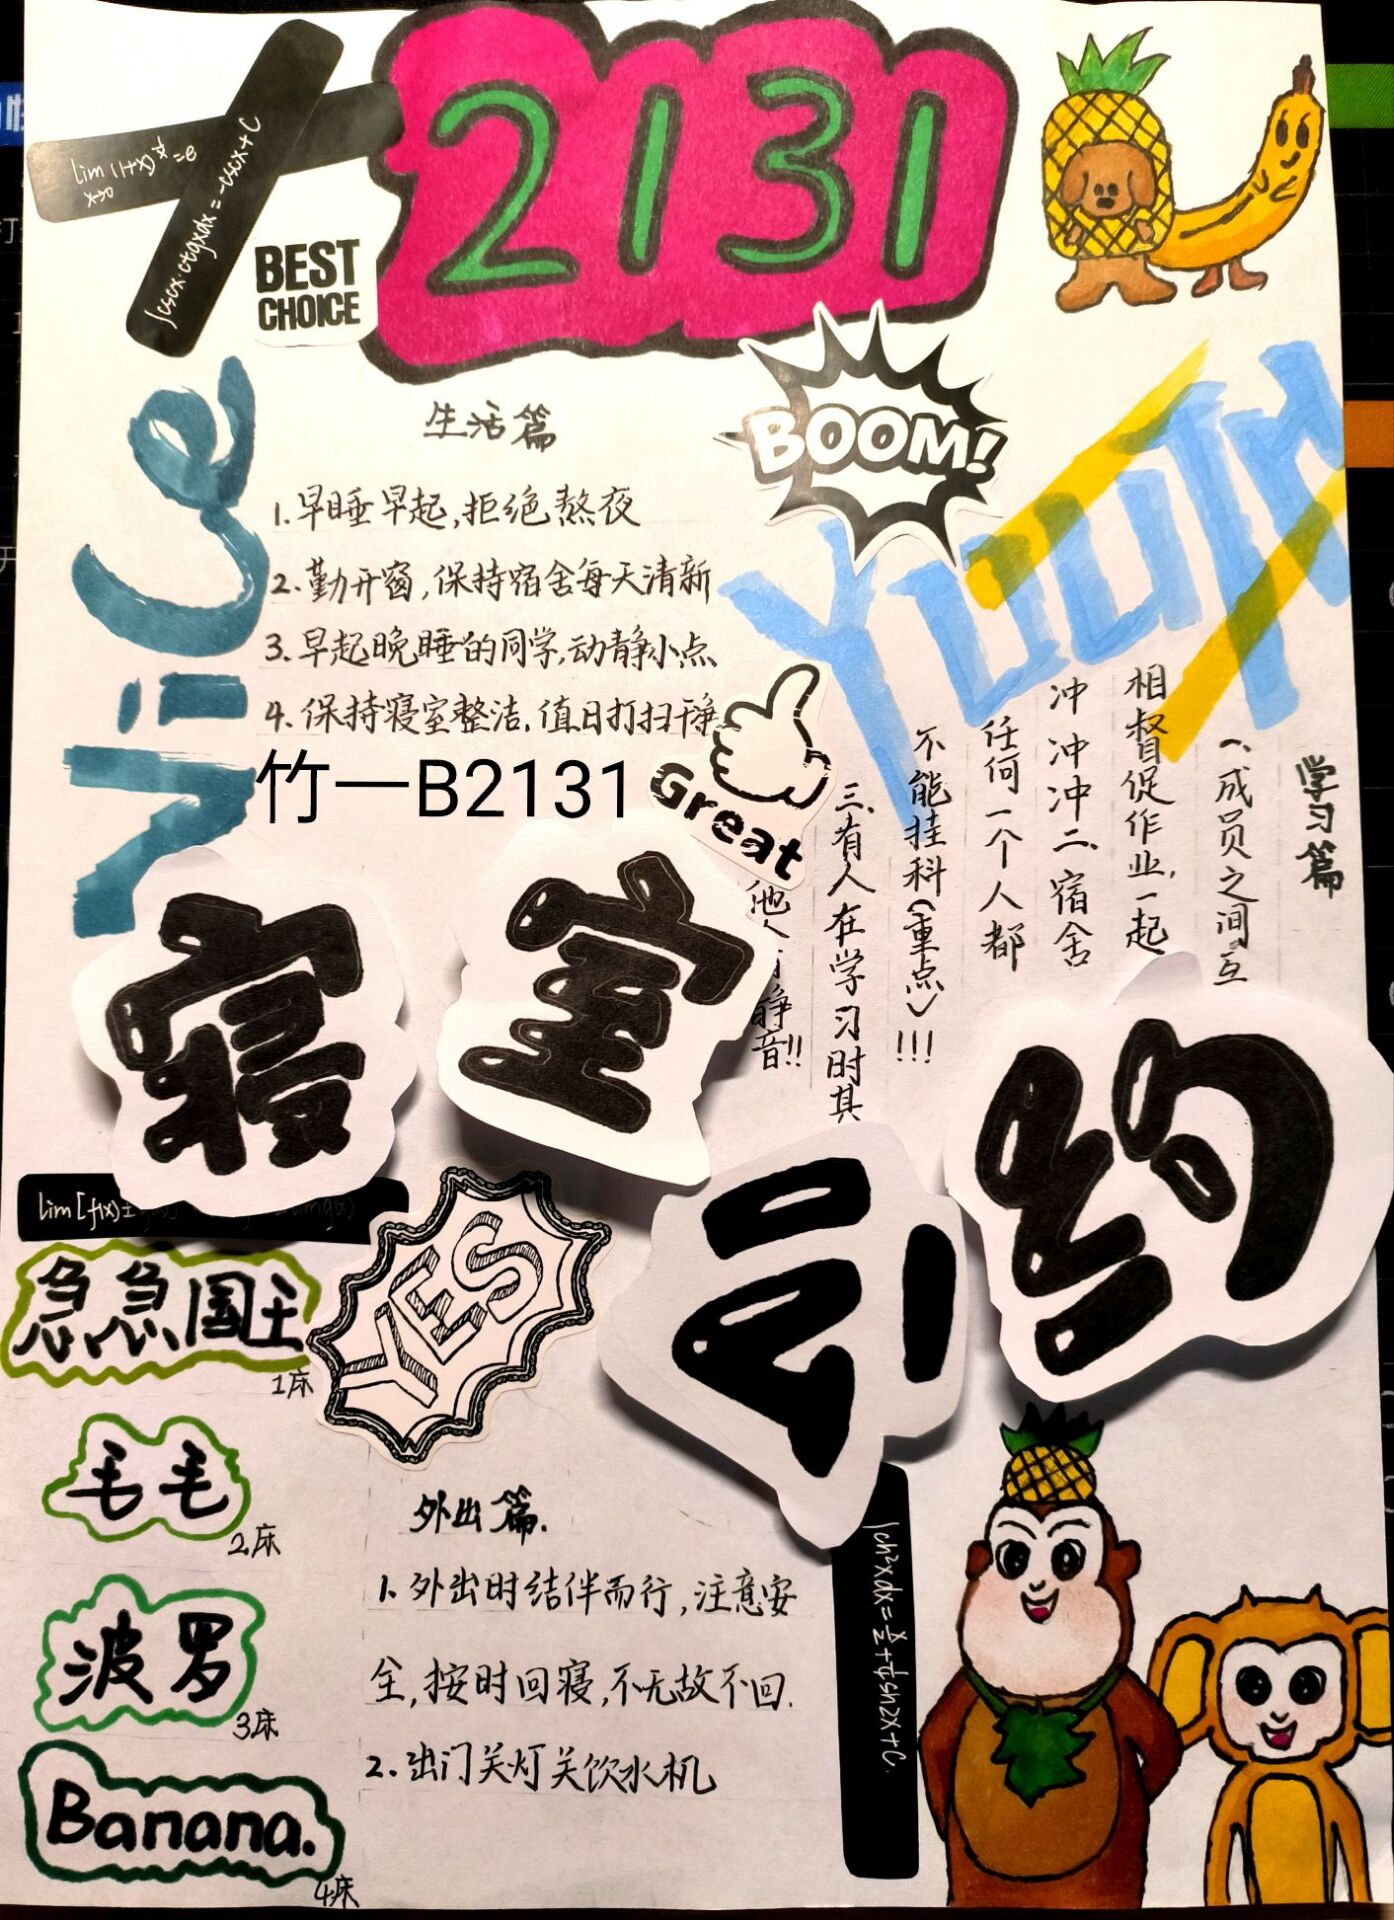 2131
lim (1+x)^{1/x} = e
x→0
∫cscx·ctgxdx = -cscx+C
BEST
CHOICE
BOOM!
Nice
Youth
生活篇
1.早睡早起,拒绝熬夜
2.勤开窗,保持宿舍每天清新
3.早起晚睡的同学,动静小点
4.保持寝室整洁,值日打扫干净
竹一B2131
Great
学习篇
一、成员之间互
相督促作业,一起
冲冲冲二、宿舍
任何一个人都
不能挂科(重点)!!!
三、有人在学习时其
他人 静音!!
寝室公约
lim[f(x)±
急急国王
1床
YES
毛毛
2床
波罗
3床
Banana.
4床
外出篇.
1.外出时结伴而行,注意安
全,按时回寝,不无故不回.
2.出门关灯关饮水机
∫ch²xdx = x/2 + 1/4 sh2x+C.